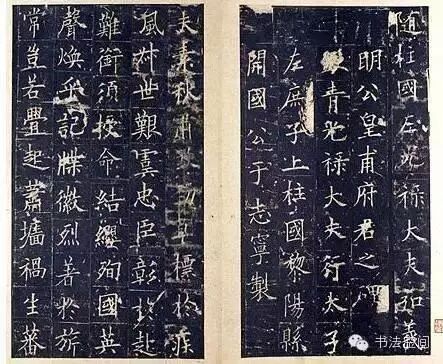 隨柱國左光祿大夫弘義
明公皇甫府君之碑
青光祿大夫行太子
左庶子上柱國黎陽縣
開國公于志寧製
夫素秋肅勁草標於疾
風叔世艱虞忠臣彰於赴
難銜須授命結纓殉國英
聲煥乎記牒徽烈著於旂
常豈若疊起蕭墻禍生蕃
书法空间